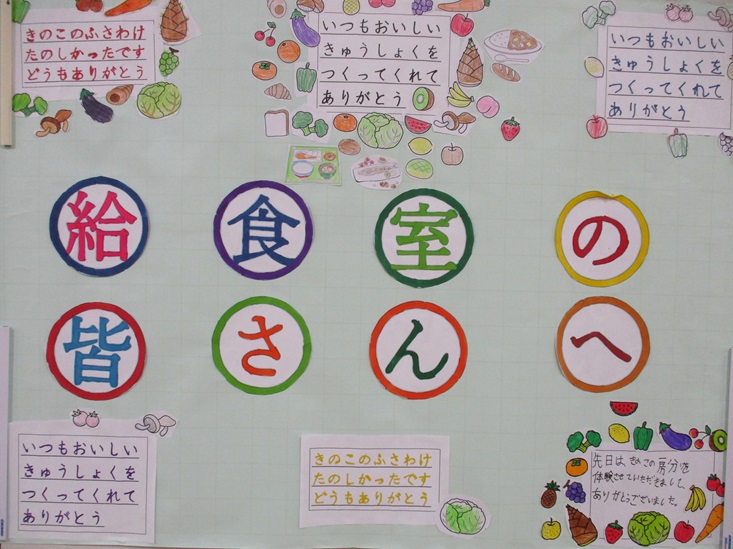 きのこのふさわけ
たのしかったです
どうもありがとう
いつもおいしい
きゅうしょくを
つくってくれて
ありがとう
いつもおいしい
きゅうしょくを
つくってくれて
ありがとう
給食室の
皆さんへ
いつもおいしい
きゅうしょくを
つくってくれて
ありがとう
きのこのふさわけ
たのしかったです
どうもありがとう
先日は、きのこの房分を
体験させていただきまして、
ありがとうございました。